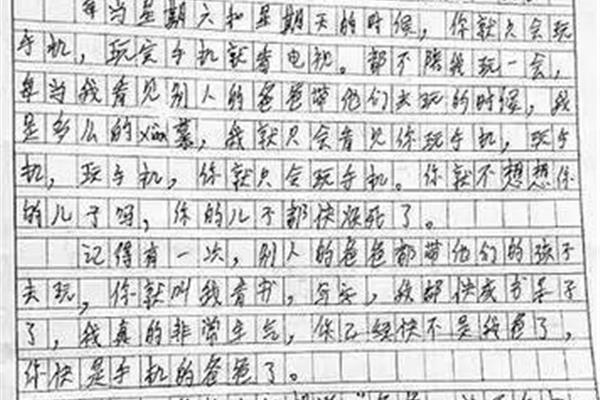 每当星期六和星期天的时候，你就只会玩
手机，玩完手机就看电视。都不陪我玩一会，
每当我看见别人的爸爸带他们去玩的时候，我
是多么的xian慕，我就只会看见你玩手机，玩手
机，玩手机，你就只会玩手机。你就不想想你
的儿子吗，你的儿子都快烦死了。
记得有一次，别人的爸爸都带他们的孩子
去玩，你就叫我看书，写字，我都快成书呆子
了，我真的非常生气，你已经快不是我爸了，
你快是手机的爸爸了。